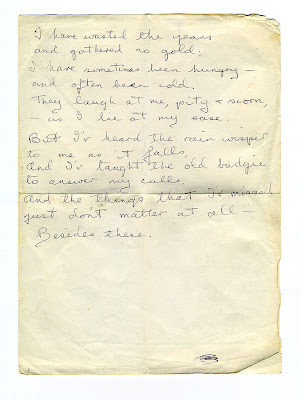 I have wasted the years
and gathered no gold;
I have sometimes been hungry –
and often been cold.
They laugh at me, pity & scorn,
– as I lie at my ease.
But I'v heard the rain wisper
to me as it falls,
And I'v taught the old budgie
to answer my calls,
And the things that I'v missed
just don't matter at all –
Besides these.